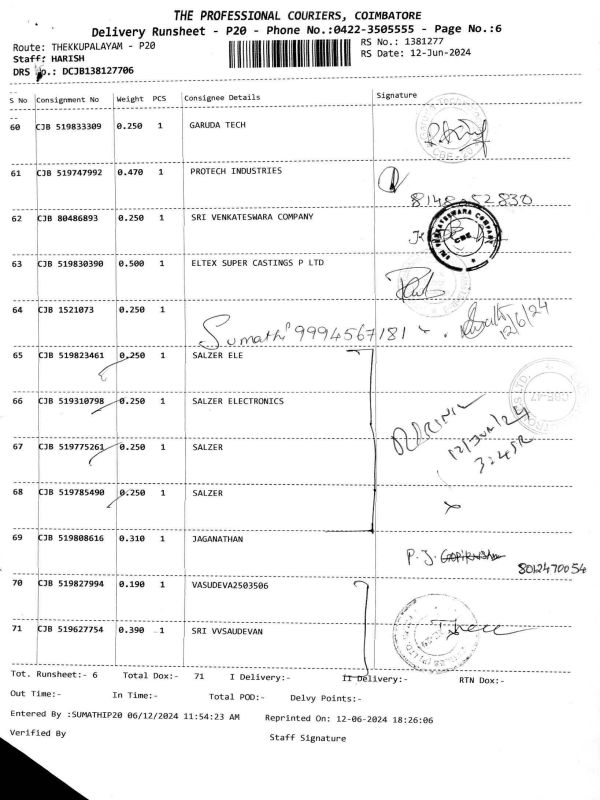 THE PROFESSIONAL COURIERS, COIMBATORE
Delivery Runsheet - P20 - Phone No.:0422-3505555 - Page No.:6
Route: THEKKUPALAYAM - P20
RS No.: 1381277
Staff: HARISH
RS Date: 12-Jun-2024
DRS No.: DCJB138127706
S No Consignment No Weight PCS Consignee Details Signature
60 CJB 519833309 0.250 1 GARUDA TECH
61 CJB 519747992 0.470 1 PROTECH INDUSTRIES
62 CJB 80486893 0.250 1 SRI VENKATESWARA COMPANY
SRI VENKATESWARA COMPANY
CBE
63 CJB 519830390 0.500 1 ELTEX SUPER CASTINGS P LTD
64 CJB 1521073 0.250 1
Sumathi 9994567181
12/6/24
65 CJB 519823461 0.250 1 SALZER ELE
66 CJB 519310798 0.250 1 SALZER ELECTRONICS
12/Jun/24
67 CJB 519775261 0.250 1 SALZER
68 CJB 519785490 0.250 1 SALZER
69 CJB 519808616 0.310 1 JAGANATHAN
P. J.
8012470054
70 CJB 519827994 0.190 1 VASUDEVA2503506
71 CJB 519627754 0.390 1 SRI VVSAUDEVAN
Tot. Runsheet:- 6 Total Dox:- 71 I Delivery:- II Delivery:- RTN Dox:-
Out Time:- In Time:- Total POD:- Delvy Points:-
Entered By :SUMATHIP20 06/12/2024 11:54:23 AM Reprinted On: 12-06-2024 18:26:06
Verified By Staff Signature